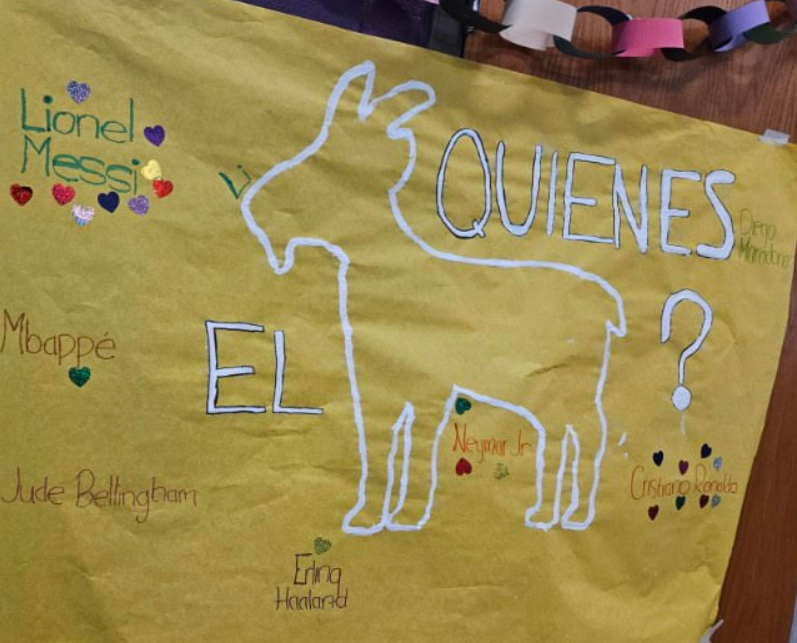 Lionel
Messi
QUIENES
Diego
Maradona
Mbappé
EL
?
Neymar Jr
Cristiano Ronaldo
Jude Bellingham
Erling
Haaland